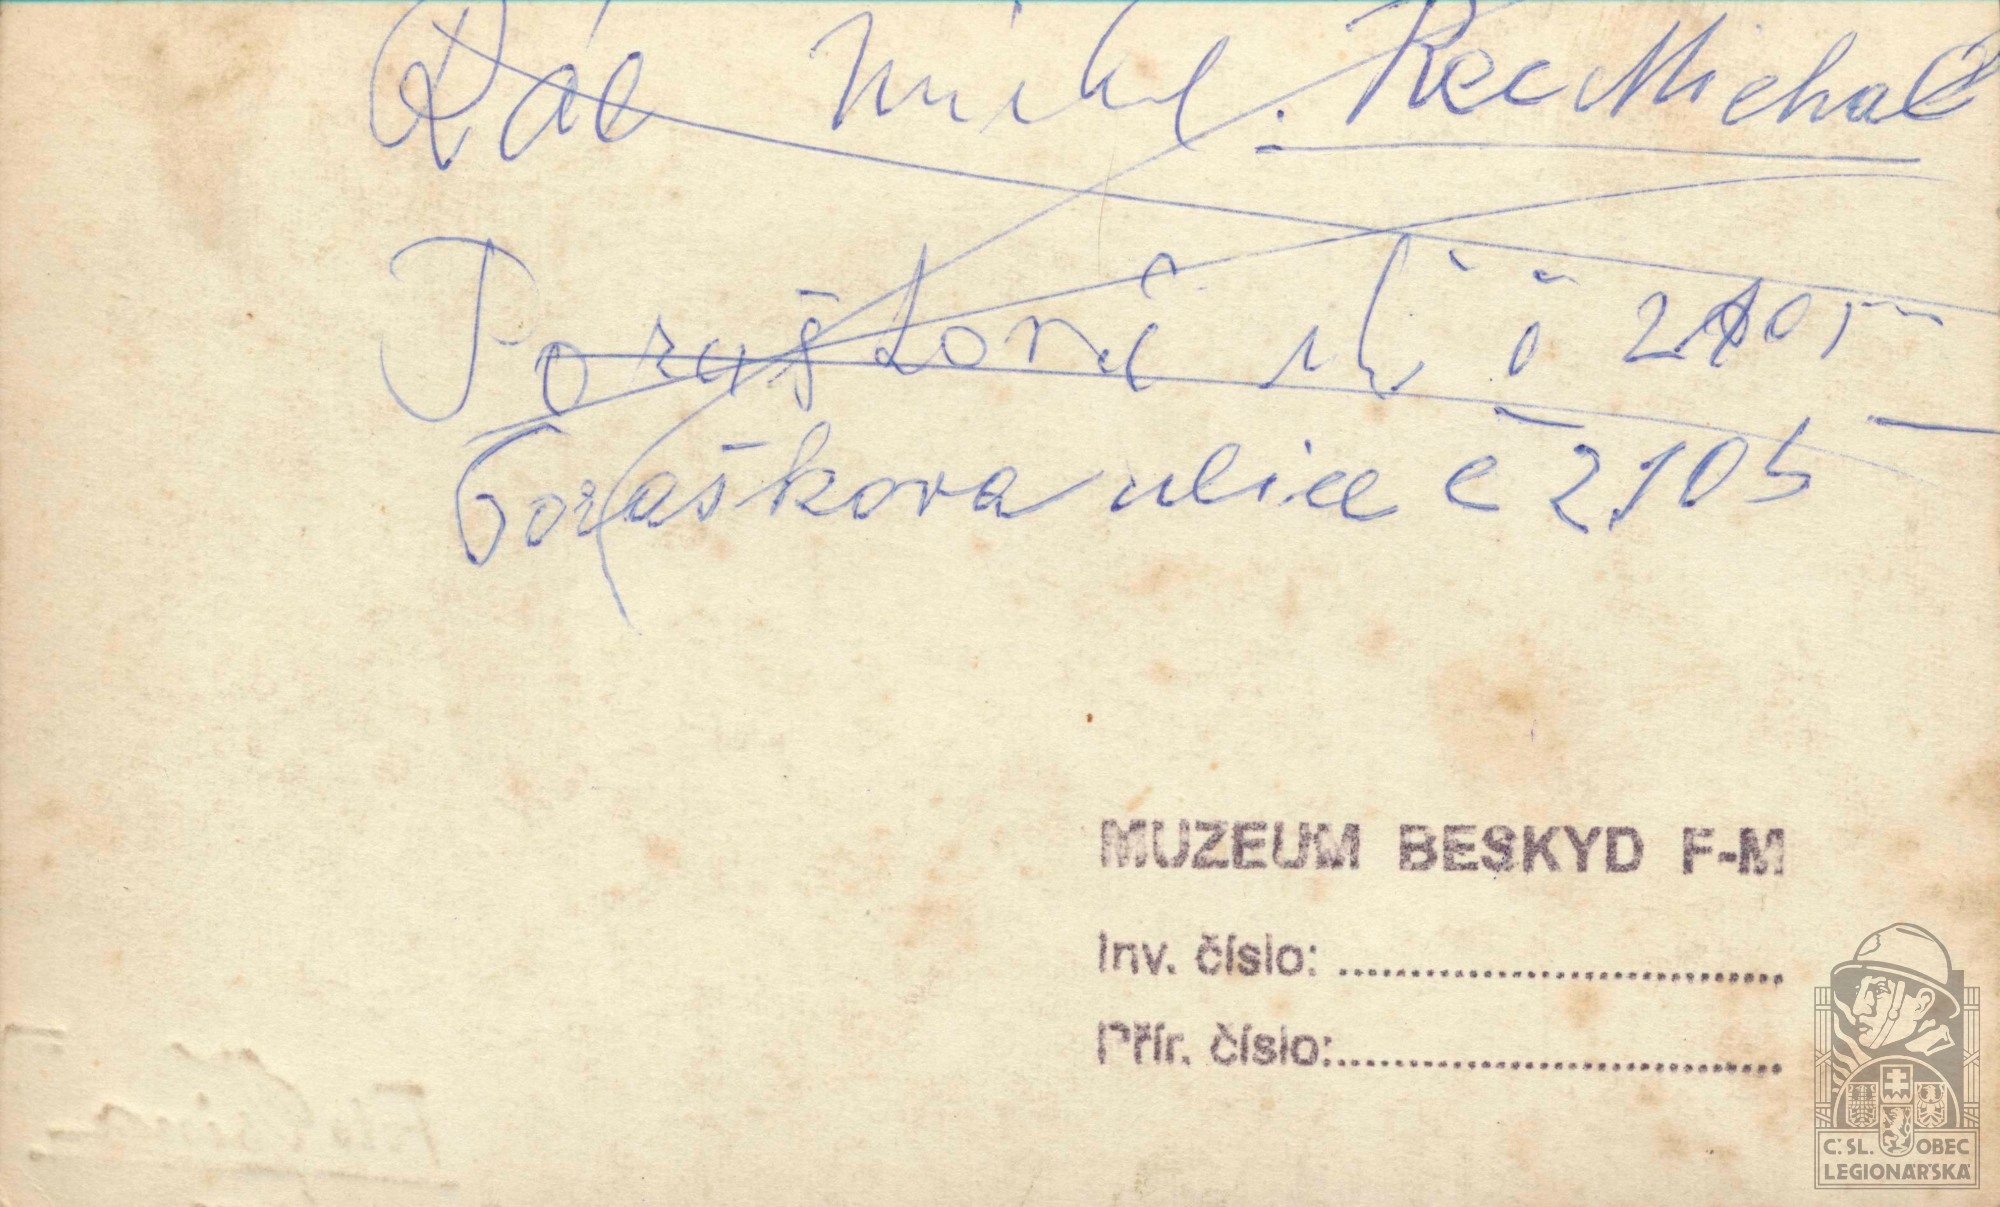 Rec Michal
Poruškova ul č 2105
Foraškova ulice č 2105
MUZEUM BESKYD F-M
Inv. číslo:
Přír. číslo:
Č.SL. OBEC
LEGIONÁŘSKÁ